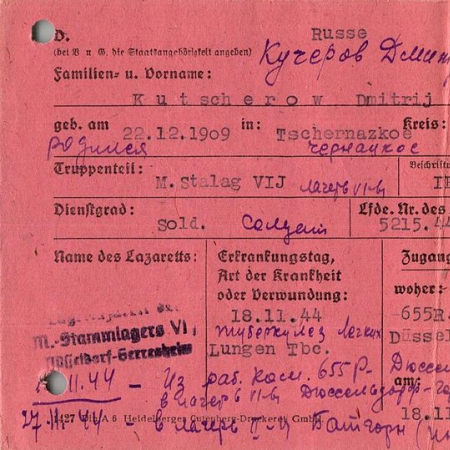 D. Russe
(bei V u G. die Staatsangehörigkeit angeben) Кучеров Дмит
Familien- u. Vorname:
Kutscherow Dmitrij
geb. am 22.12.1909 in: Tschernazkoe Kreis:
родился чернацкое
Truppenteil: Beschriftu
M. Stalag VIJ лагерь
Dienstgrad: Lfde. Nr. des
Sold. Солдат 5215.44
Name des Lazaretts: Erkrankungstag, Zugang
Art der Krankheit woher:
oder Verwundung: 655R.
18.11.44 Düssel
M.-Stammlagers VI туберкулез легких
Düsseldorf-Gerresheim Lungen Tbc. Дюссел
am:
11.44 – Из раб. ком. 655 Р- 18.11
в лагерь Дюссельдорф-
427 Din A 6 Heidelberger Gutenberg-Druckerei GmbH
27 44 - в лагерь